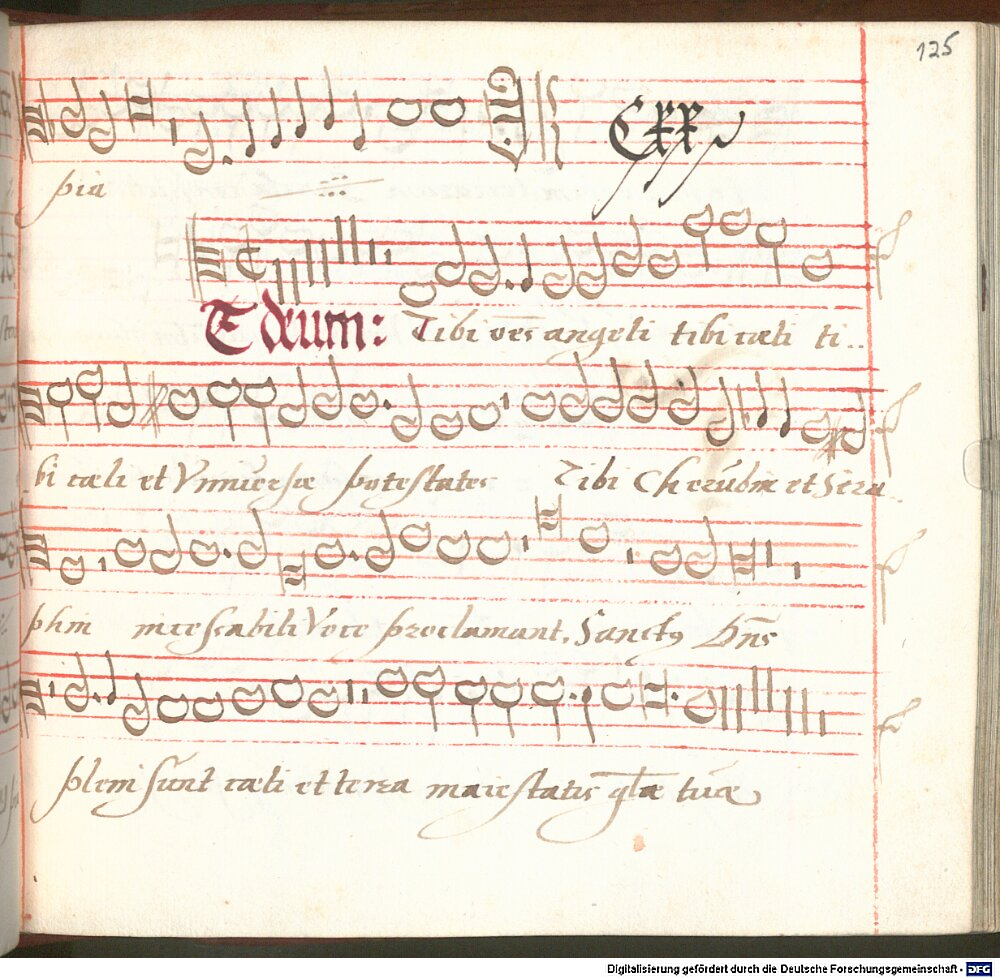 125
Cxx
pia
Te deum: Tibi oēs angeli tibi cæli ti..
bi cæli et Vniuersæ potestates Tibi Cherubin et Sera..
phin incessabili Voce proclamant. Sanctus Dñs
pleni sunt cæli et terra maiestatis glæ tuæ
Digitalisierung gefördert durch die Deutsche Forschungsgemeinschaft - DFG